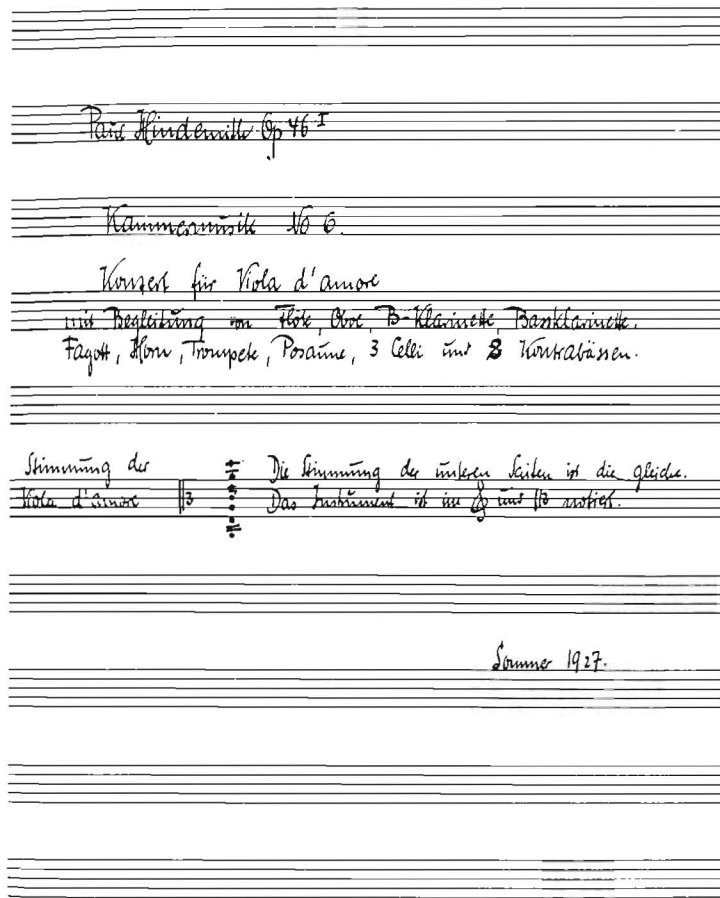 Paul Hindemith Op 46 I
Kammermusik No 6.
Konzert für Viola d'amore
mit Begleitung von Flöte, Oboe, B-Klarinette, Bassklarinette,
Fagott, Horn, Trompete, Posaune, 3 Celli und 2 Kontrabässen.
Stimmung der Die Stimmung der unteren Saiten ist die gleiche.
Viola d'amore Das Instrument ist im und notiert.
Sommer 1927.